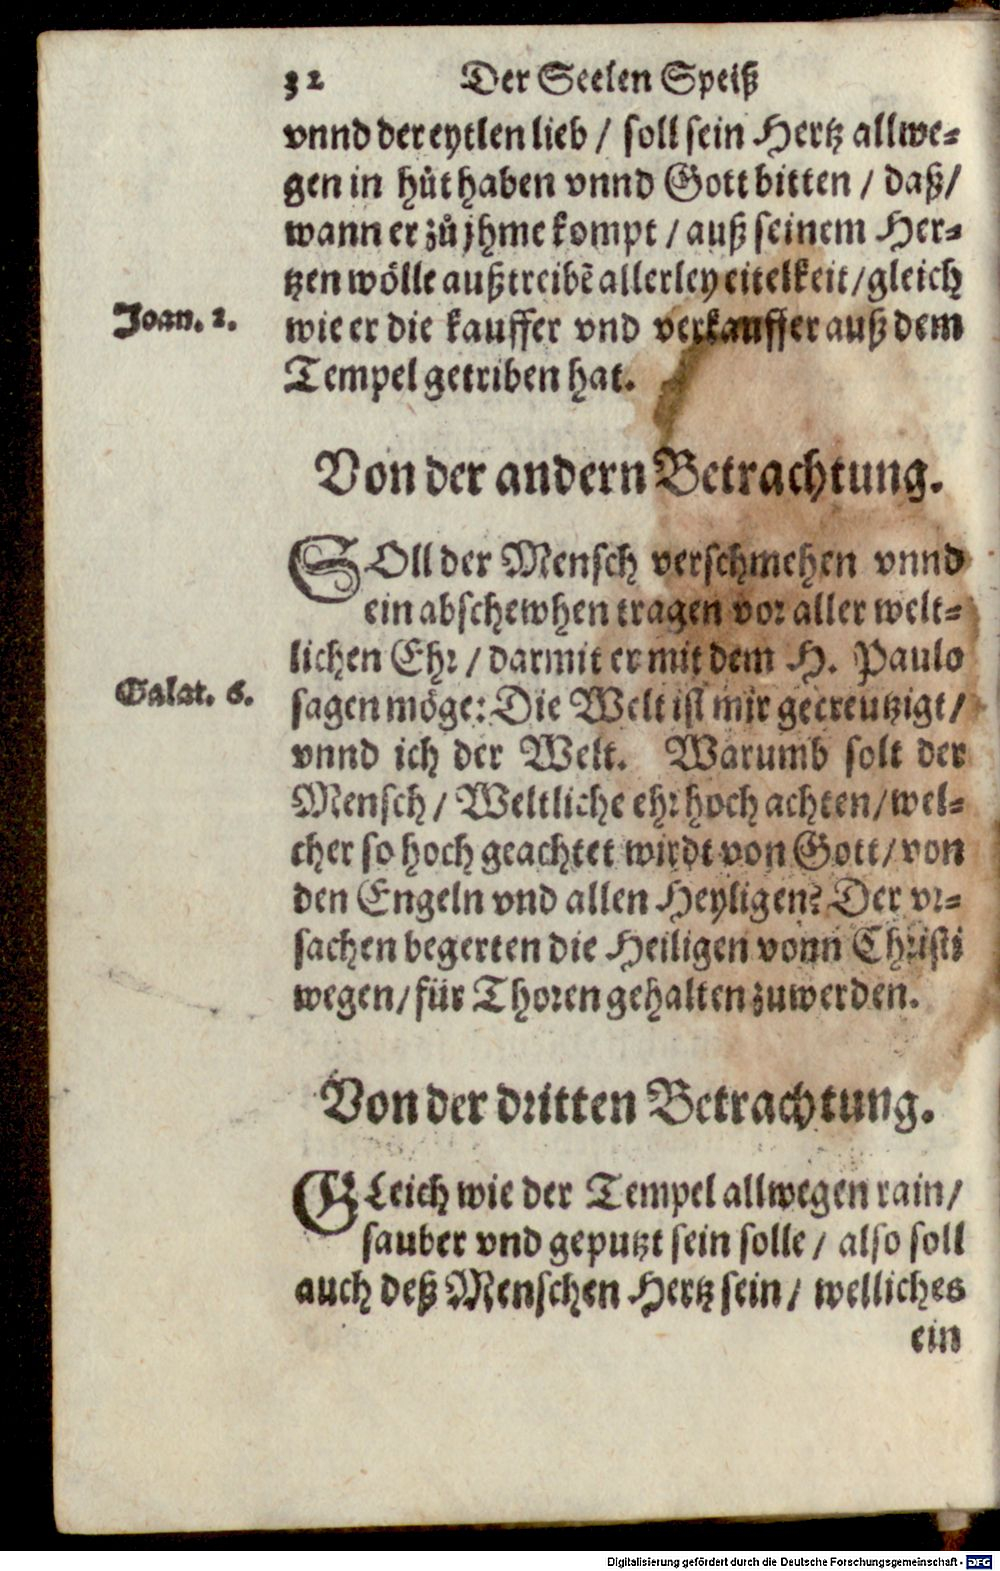 32 Der Seelen Speiß
vnnd der eytlen lieb / soll sein Hertz allwe⸗
gen in hůt haben vnnd Gott bitten / daß /
wann er zů jhme kompt / auß seinem Her⸗
tzen wölle außtreibẽ allerley eitelkeit / gleich
Joan. 2.
wie er die kauffer vnd verkauffer auß dem
Tempel getriben hat.
Von der andern Betrachtung.
SOll der Mensch verschmehen vnnd
ein abschewhen tragen vor aller welt⸗
lichen Ehr / darmit er mit dem H. Paulo
Galat. 6.
sagen möge: Die Welt ist mir gecreutzigt /
vnnd ich der Welt. Warumb solt der
Mensch / Weltliche ehr hoch achten / wel⸗
cher so hoch geachtet wirdt von Gott / von
den Engeln vnd allen Heyligen? Der vr⸗
sachen begerten die Heiligen vonn Christi
wegen / für Thoren gehalten zuwerden.
Von der dritten Betrachtung.
GLeich wie der Tempel allwegen rain /
sauber vnd geputzt sein solle / also soll
auch deß Menschen Hertz sein / welliches
ein
Digitalisierung gefördert durch die Deutsche Forschungsgemeinschaft - DFG